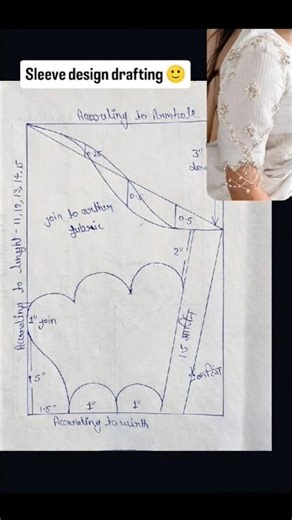 Sleeve design drafting 🙂
According to Armhole
0.25
3"
down
0.5
0.5
join to orther
fabric
2"
According to lenght - 11, 12, 13, 14, 15
1" join
5"
1.5 मार्जिन
1.5"
1"
1"
According to wirth